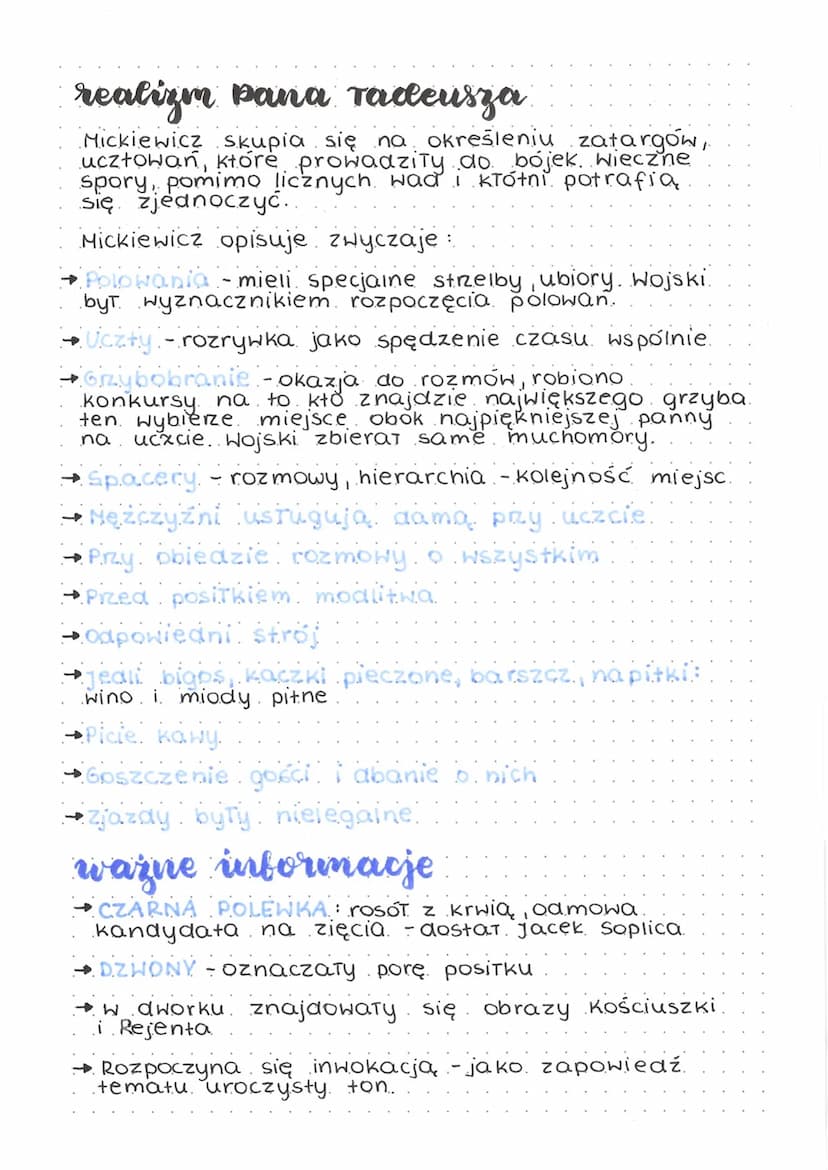 realizm Pana Tadeusza
Mickiewicz skupia się na określeniu zatargów,
ucztowań, które prowadziły do bójek. Wieczne
spory, pomimo licznych wad i kłótni potrafią
się zjednoczyć.
Mickiewicz opisuje zwyczaje:
→ Polowania - mieli specjalne strzelby, ubiory. Wojski
był wyznacznikiem rozpoczęcia polowań.
→ Uczty - rozrywka jako spędzenie czasu wspólnie
→ Grzybobranie - okazja do rozmów, robiono
konkursy na to kto znajdzie największego grzyba
ten wybierze miejsce obok najpiękniejszej panny
na uczcie. Wojski zbierał same muchomory.
→ Spacery - rozmowy, hierarchia - kolejność miejsc
→ Mężczyźni usługują damą przy uczcie.
→ Przy obiedzie rozmowy o wszystkim
→ Przed posiłkiem modlitwa
→ Odpowiedni strój
→ jedli bigos, kaczki pieczone, barszcz, napitki:
wino i miody pitne
→ Picie kawy
→ Goszczenie gości i dbanie o nich
→ Zjazdy były nielegalne
ważne informacje
→ CZARNA POLEWKA: rosół z krwią, odmowa
kandydata na zięcia - dostał Jacek Soplica
→ DZWONY - oznaczały porę posiłku
→ w dworku znajdowały się obrazy Kościuszki
i Rejenta
→ Rozpoczyna się inwokacją - jako zapowiedź
tematu uroczysty ton.